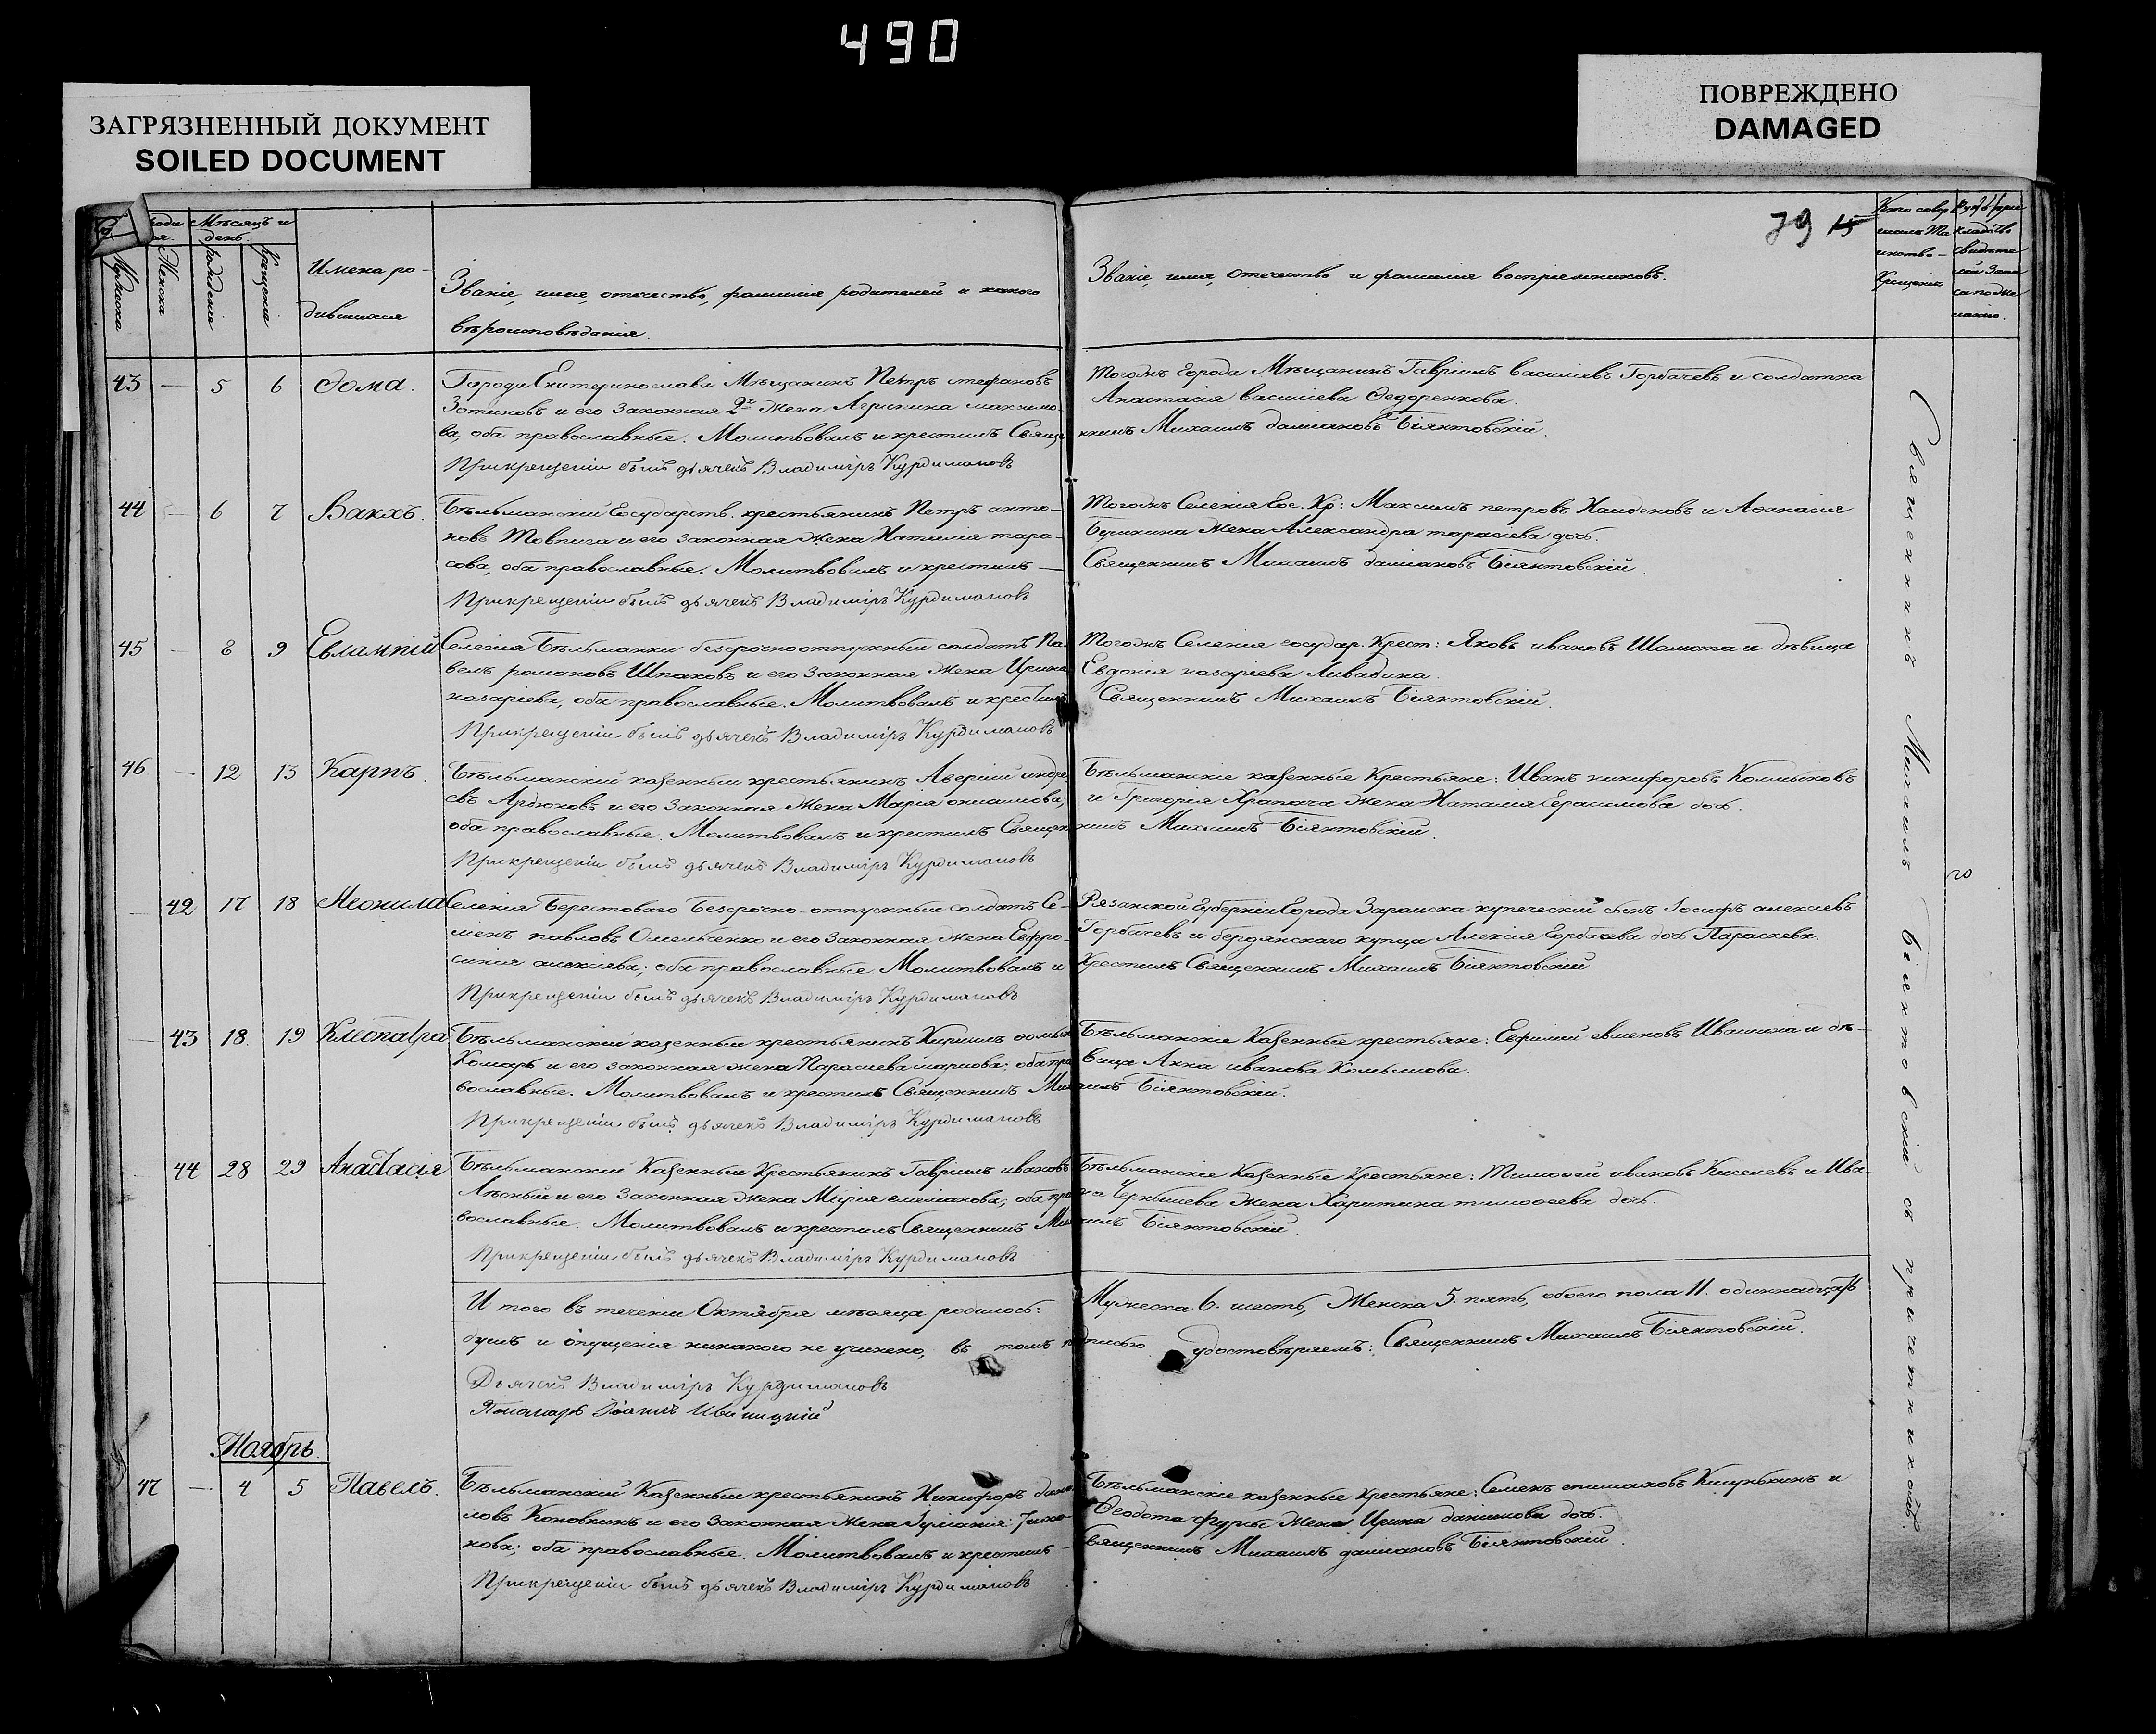 490
ЗАГРЯЗНЕННЫЙ ДОКУМЕНТ
SOILED DOCUMENT
ПОВРЕЖДЕНО
DAMAGED
79 15
Мѣсяцъ и
день.
Мужеска
Женска
рожденія
крещенія
Имена ро-
дившихся
Званіе, имя, отечество, фамилія родителей и какого
вѣроисповѣданія.
Званіе, имя, отечество и фамилія воспріемниковъ.
Кто совер
шалъ Та
инство
Крещенія
43 — 5 6 Ѳома.
Города Екатеринослава Мѣщанинъ Петръ стефановъ
Зотиковъ и его законная 2я жена Агрипина максимо-
ва, оба православные. Молитвовалъ и крестилъ Свяще
Прикрещеніи былъ дьячекъ Владиміръ Курдимановъ
Тогожъ города Мѣщанинъ Гавріилъ васильевъ Горбачевъ и солдатка
Анастасія васильева Ѳедоренкова.
нникъ Михаилъ даміановъ Біянтовскій.
44 — 6 7 Вакхъ.
Бѣльманскій Государств. крестьянинъ Петръ анто-
новъ Товпига и его законная жена Наталія тара-
сова, оба православные. Молитвовалъ и крестилъ —
Прикрещеніи былъ дьячекъ Владиміръ Курдимановъ
Тогожъ Селенія Гос. Кр: Максимъ петровъ Наиденовъ и Аѳанасія
жена Александра тарасіева дочь.
Священникъ Михаилъ даміановъ Біянтовскій.
45 — 8 9 Евлампій
Селенія Бѣльманки безсрочноотпускный солдатъ Па-
велъ романовъ Шпаковъ и его законная жена Ирина
назаріева, оба православные. Молитвовалъ и крестилъ
Прикрещеніи былъ дьячекъ Владиміръ Курдимановъ
Тогожъ Селенія государ. Крест: Яковъ ивановъ Шамота и дѣвица
Евдокія назаріева Ливадина.
Священникъ Михаилъ Біянтовскій.
46 — 12 13 Карпъ.
Бѣльманскій казенный крестьянинъ Аверкій андре-
евъ Ардюковъ и его законная жена Марія
оба православные. Молитвовалъ и крестилъ Священ
Прикрещеніи былъ дьячекъ Владиміръ Курдимановъ
Бѣльманскіе казенные Крестьяне: Иванъ никифоровъ Колмыковъ
и Григорія Храпача жена Наталія Герасимова дочь.
никъ Михаилъ Біянтовскій.
— 42 17 18 Неонила
Селенія Берестоваго Безсрочно-отпускный солдатъ Се-
менъ павловъ Омельченко и его законная жена Евфро-
синія алексіева; оба православные. Молитвовалъ и
Прикрещеніи былъ дьячекъ Владиміръ Курдимановъ
Рязанской Губерніи Города Зарайска купеческій сынъ Іосифъ алексіевъ
Горбачевъ и бердянскаго купца Алексія Горбачева дочь Параскева.
Крестилъ Священникъ Михаилъ Біянтовскій
— 43 18. 19 Клеопатра
Бѣльманскій казенный крестьянинъ Кирилъ ѳомы
Комаръ и его законная жена Парасиева; оба пра
вославные. Молитвовалъ и крестилъ Священникъ Мих
Прикрещеніи былъ дьячекъ Владиміръ Курдимановъ
Бѣльманскіе Казенные крестьяне: Евфимій евменовъ Ивашина и дѣ-
вица Анна иванова Комлыкова.
аилъ Біянтовскій.
44 28 29 Анастасія
Бѣльманскій Казенный Крестьянинъ Гавріилъ ивановъ
Лѣсный и его законная жена Марія емеліанова; оба пра
вославные. Молитвовалъ и крестилъ Священникъ Мих
Прикрещеніи былъ дьячекъ Владиміръ Курдимановъ
Бѣльманскіе Казенные Крестьяне: Тимоѳей ивановъ Киселевъ и Ива-
на Чернышева жена Харитина тимоѳеева дочь.
аилъ Біянтовскій.
Итого въ теченіи Октября мѣсяца родилось:
Мужеска 6. шесть, Женска 5. пять, обоего пола 11. одиннадцать
душъ и опущенія никакого не учинено, въ томъ подписью удостовѣряемъ: Священникъ Михаилъ Біянтовскій.
Дьячекъ Владиміръ Курдимановъ
Пономарь
Ноябрь.
47 — 4 5 Павелъ.
Бѣльманскій Казенный крестьянинъ Никифоръ дани-
ловъ Коновкинъ и его законная жена Іуліанія Тихо-
нова; оба православные. Молитвовалъ и крестилъ —
Прикрещеніи былъ дьячекъ Владиміръ Курдимановъ
Бѣльманскіе казенные крестьяне: Семенъ и
Ѳеодота Фурсы жена Ирина данилова дочь.
Священникъ Михаилъ даміановъ Біянтовскій.
Священникъ Михаилъ Біянтовскій съ причетниками.